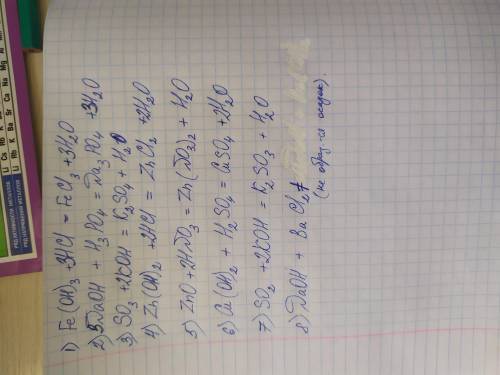 1) Fe(OH)3 + 3HCl = FeCl3 + 3H2O
2) 3NaOH + H3PO4 = Na3PO4 + 3H2O
3) SO3 + 2KOH = K2SO4 + H2O
4) Zn(OH)2 + 2HCl = ZnCl2 + 2H2O
5) ZnO + 2HNO3 = Zn(NO3)2 + H2O
6) Cu(OH)2 + H2SO4 = CuSO4 + 2H2O
7) SO2 + 2KOH = K2SO3 + H2O
8) NaOH + BaCl2 ≠
(не образ-ся осадок).
Li Cs Rb K Ba Sr Ca Na Mg